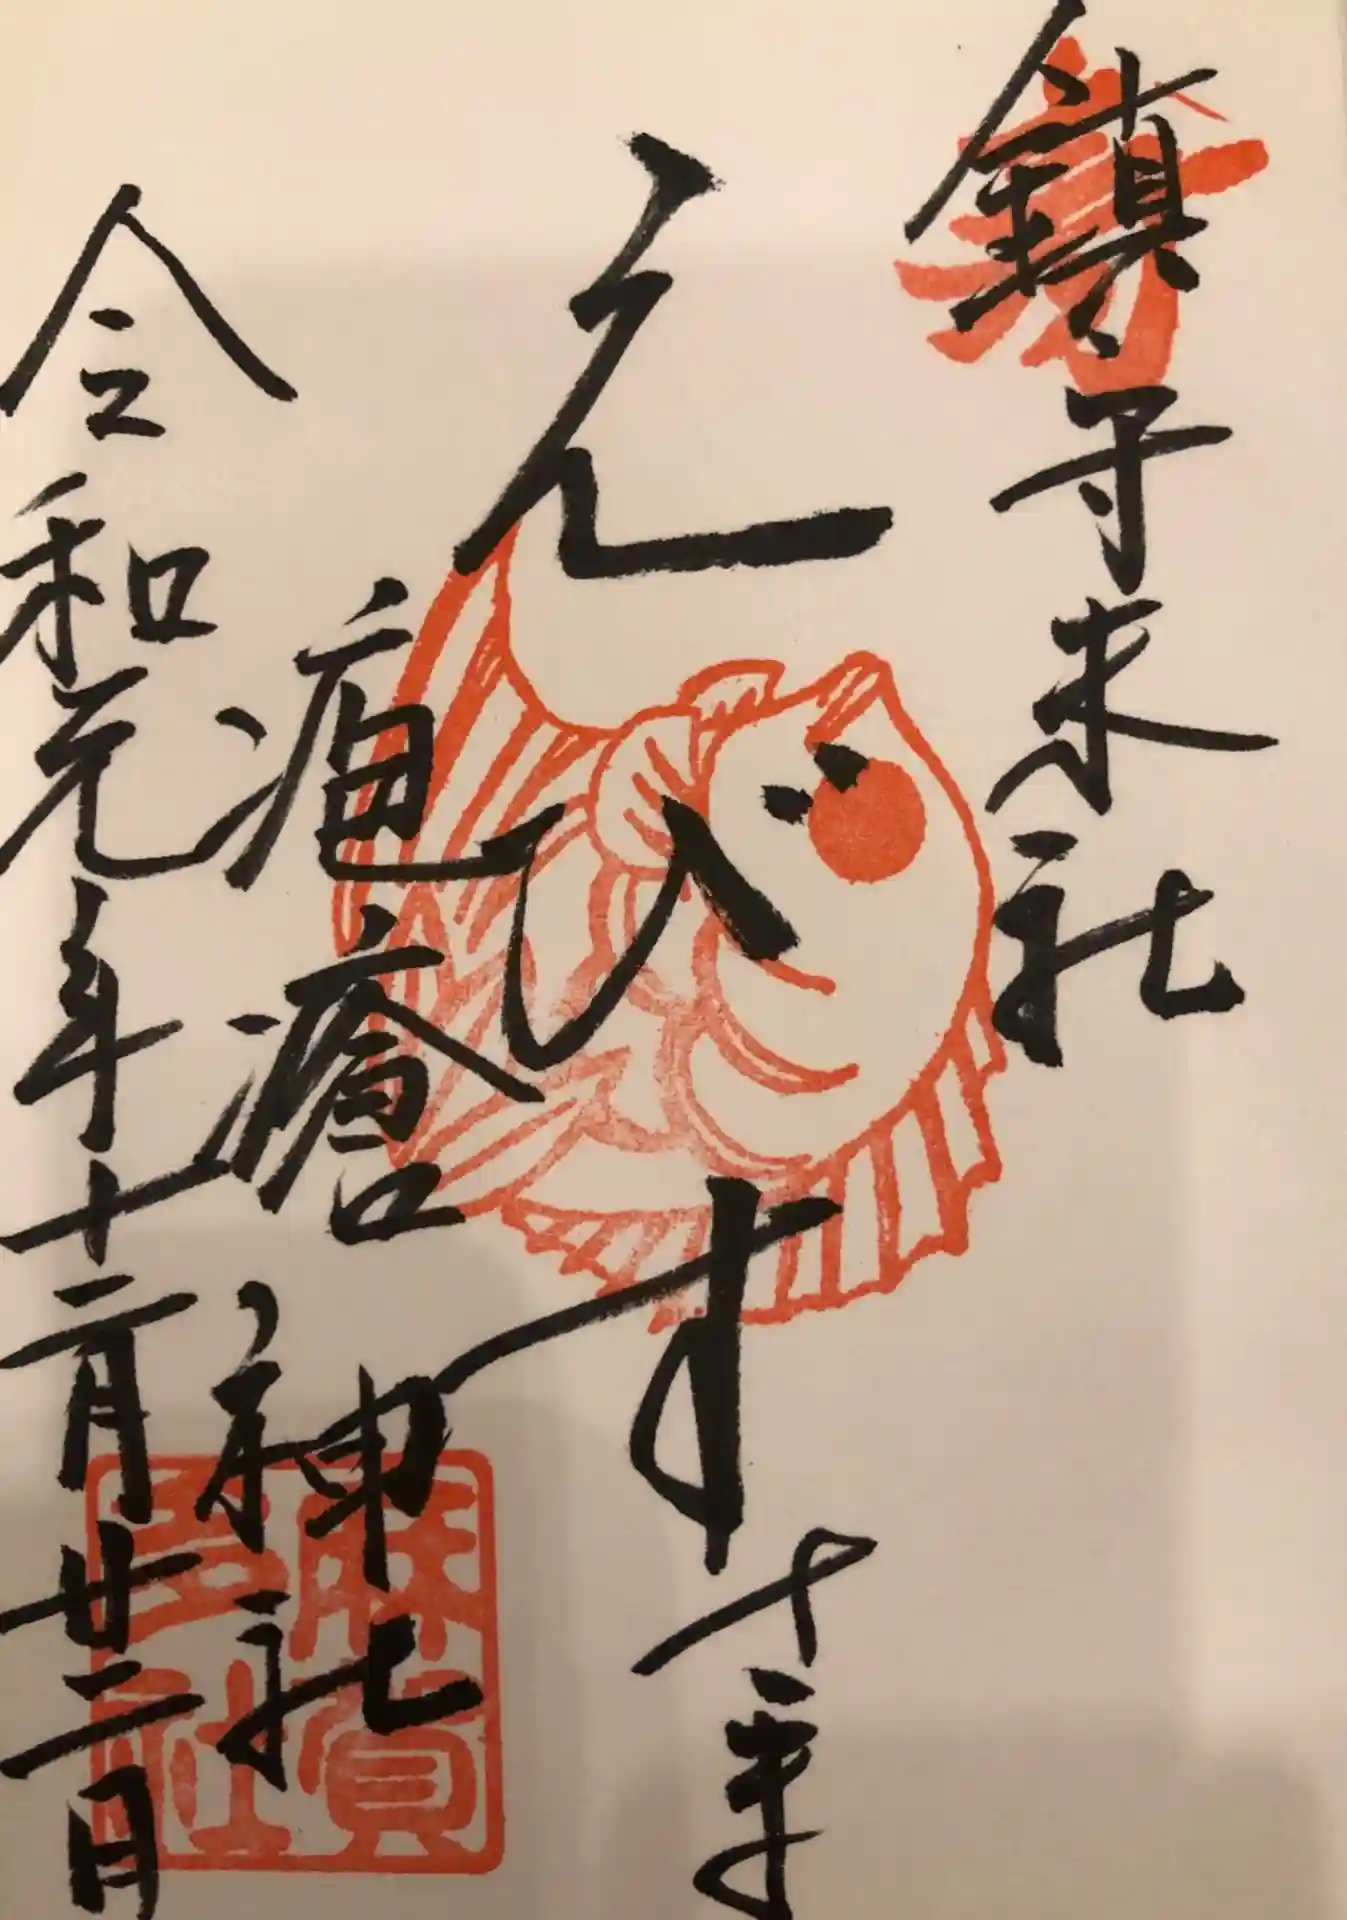 鎮守末社
えびす
疱瘡神社
令和元年十二月廿二日
麻賀
多社